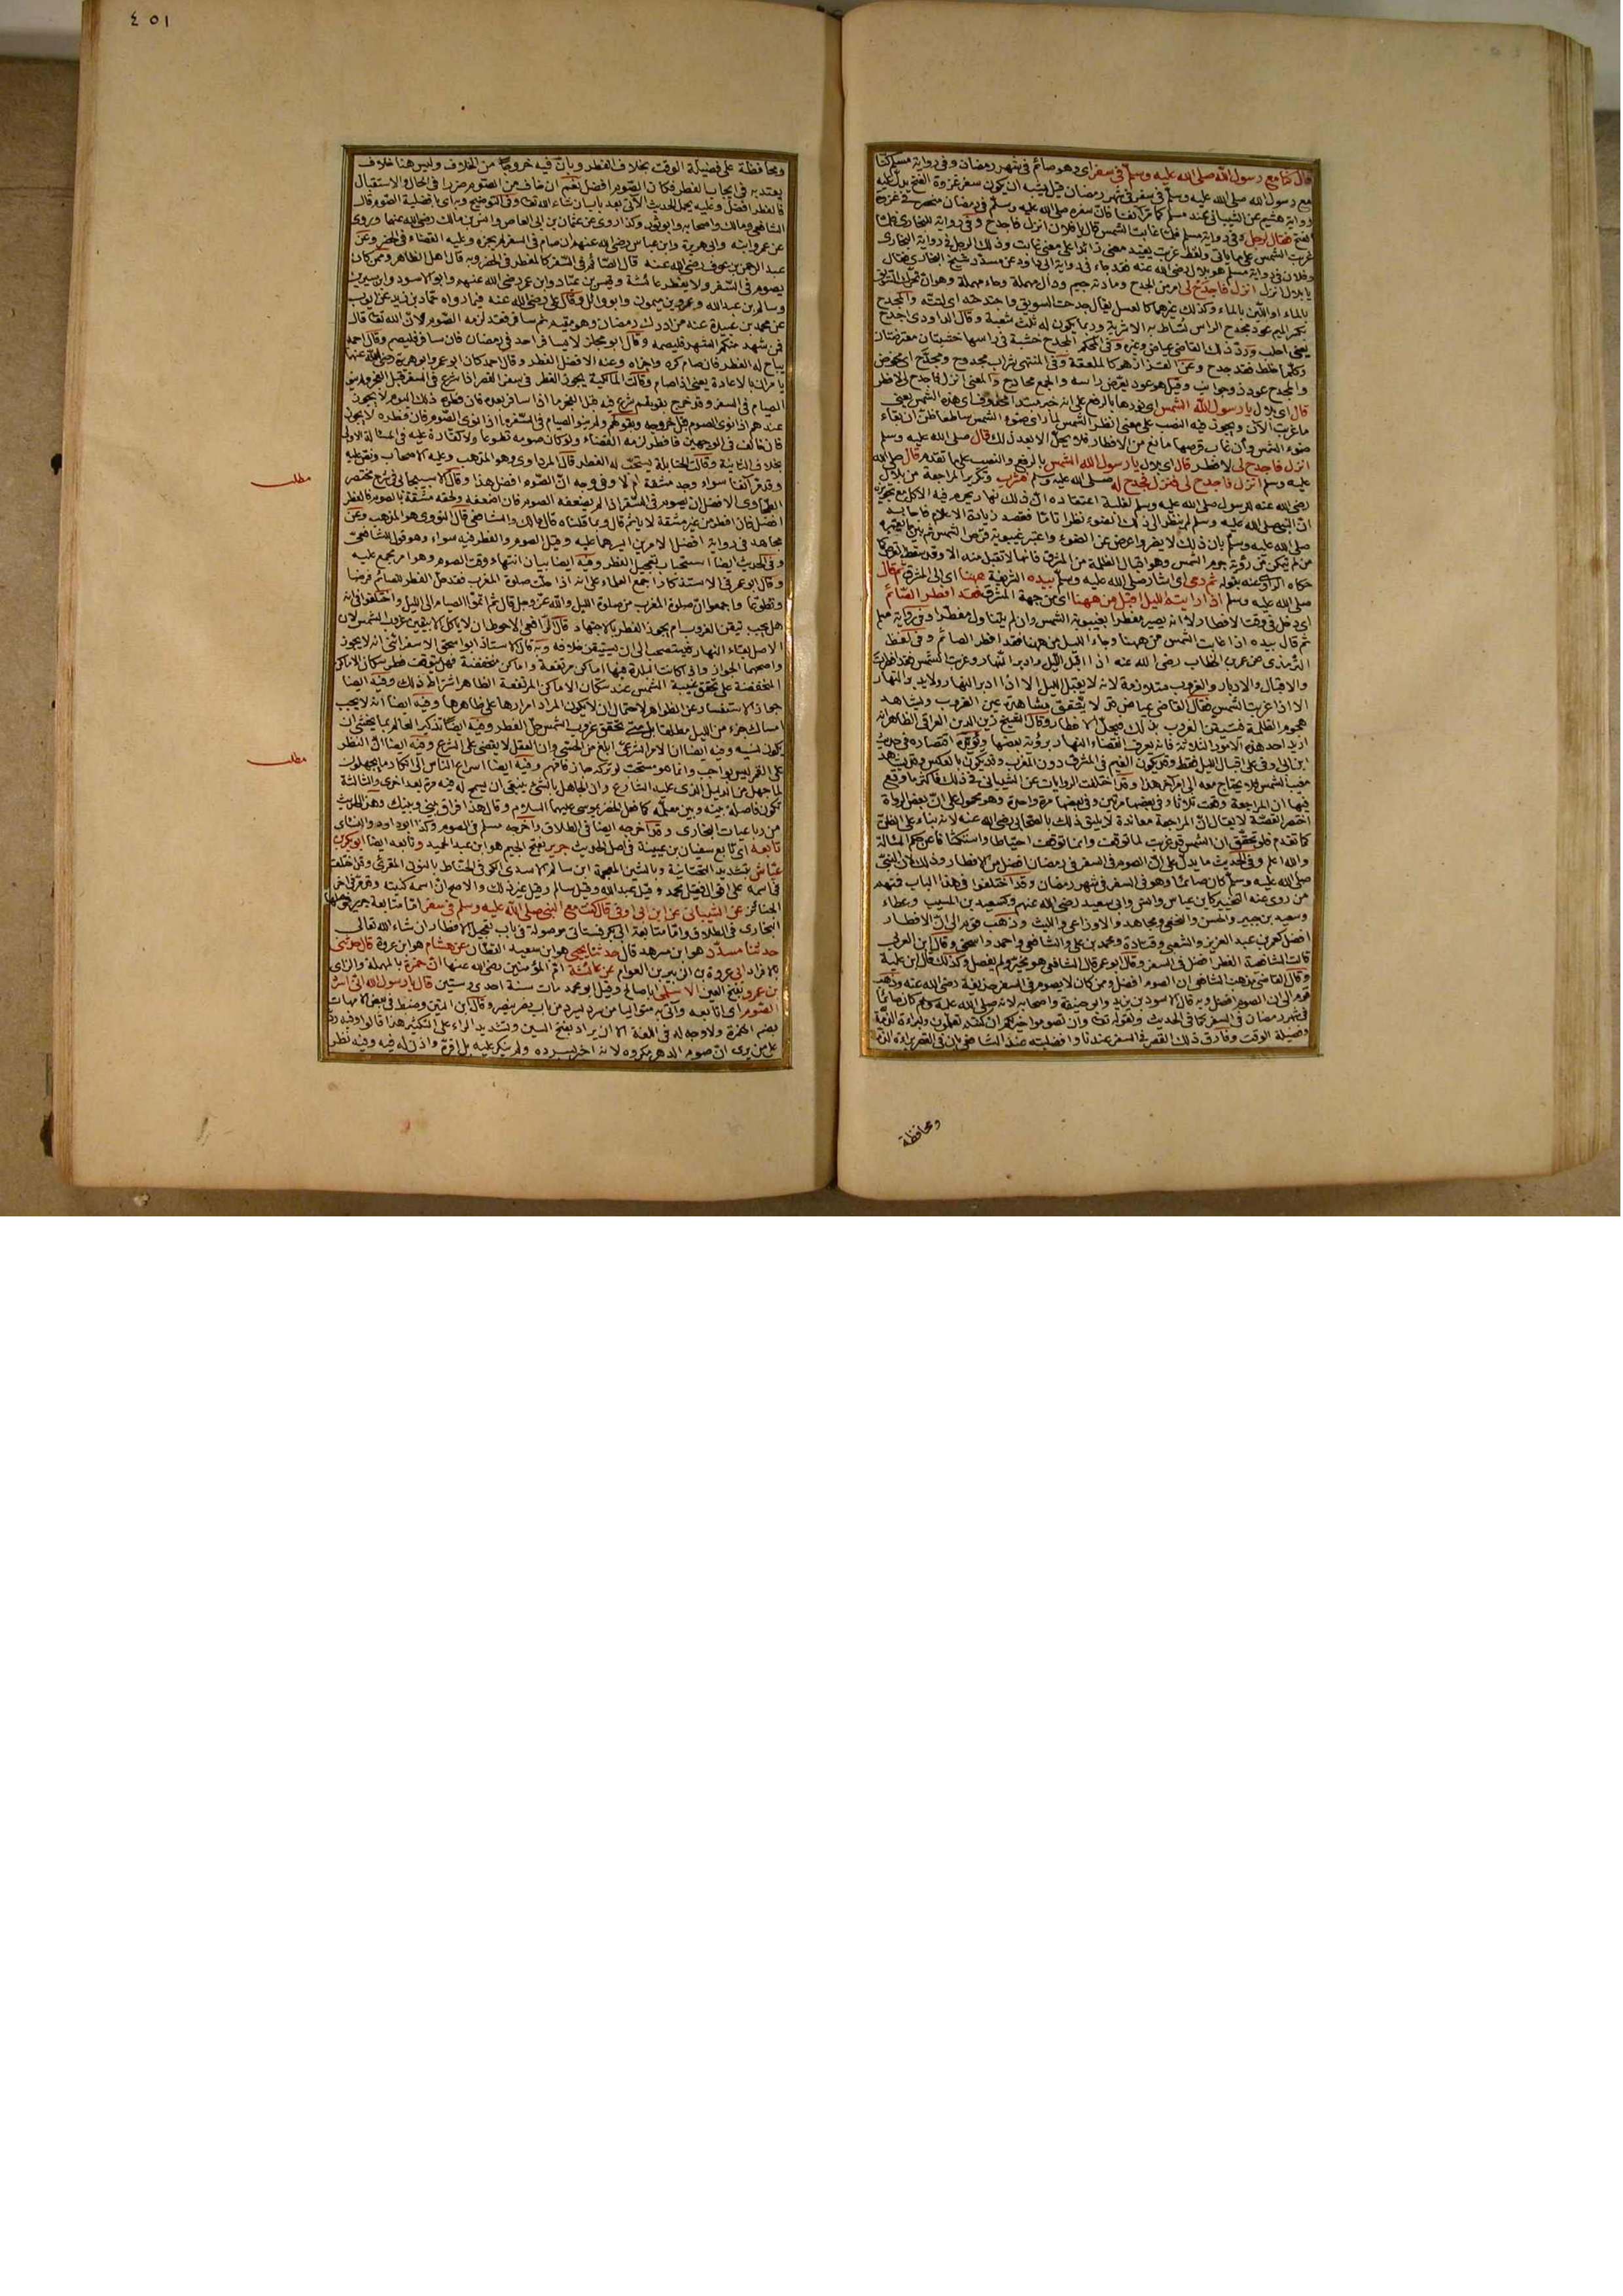 قال كنا مع رسول الله صلى الله عليه وسلم في سفر اى وهو صائم في شهر رمضان وفي رواية مسلم كنا
مع رسول الله صلى الله عليه وسلم في سفر في شهر رمضان قيل يشبه ان يكون سفر غزوة الفتح يدل عليه
رواية هشيم عن الشيباني عند مسلم
الفتح فقال لرجل وفي رواية مسلم فلما غابت الشمس قال يا فلان انزل فاجدح وفي رواية للبخارى فلما
غربت الشمس على ما يأتي ولفظ غربت يفيد معنى زائدا على معنى غابت وذلك الرجل في رواية البخارى
وفلان في رواية مسلم هو بلال رضى الله عنه فقد جاء في رواية ابى داود عن مسدد شيخ البخارى فقال
يا بلال انزل انزل فاجدح لى امر من الجدح ومادته جيم ودال مهملة وحاء مهملة وهو ان تحرك السويق
بالماء او اللبن بالماء وكذلك غيرهما كالعسل يقال جدحت السويق واجتدحته اى لتته والمجدح
بكسر الميم عود مجدح الراس تساط به الاشربة وربما يكون له ثلاث شعبة وقال الداودى اجدح
يعنى احلب ورد ذلك القاضى عياض وغيره وفي المحكم المجدح خشبة في راسها خشبتان معترضتان
وكلما خلط فقد جدح وعن القزاز هو كالملعقة وفي المنتهى شراب مجدوح ومجدح اى مخوض
والمجدح عود ذو جوانب وقيل هو عود يعرض راسه والجمع مجاديح والمعنى انزل فاجدح لى لافطر
قال اى بلال يا رسول الله الشمس اى نورها بالرفع على انه خبر مبتدا محذوف اى هذه الشمس يعنى
ما غربت الآن ويجوز فيه النصب على معنى انظر الشمس لما راى ضوء الشمس ساطعا ظن ان بقاء
ضوء الشمس وان غاب قرصها مانع من الافطار فلا يحل الا بعد ذلك قال صلى الله عليه وسلم
انزل فاجدح لى لافطر قال اى بلال يا رسول الله الشمس بالرفع والنصب على ما تقدم قال صلى الله
عليه وسلم انزل فاجدح لى فنزل فجدح له صلى الله عليه وسلم فشرب وتكرير المراجعة من بلال
رضى الله عنه للرسول صلى الله عليه وسلم لغلبة اعتقاده ان ذلك نهار يحرم فيه الاكل مع تجويزه
ان النبي صلى الله عليه وسلم لم ينظر الى ذلك الضوء نظرا تاما فقصد زيادة الاعلام فاجابه
صلى الله عليه وسلم بان ذلك لا يضر واعرض عن الضوء واعتبر غيبوبة قرص الشمس ثم بين ما يعتبره
من لم يتمكن من رؤية جرم الشمس وهو اقبال الظلمة من المشرق فانها لا تقبل منه الا وقد سقط القرص كما
حكاه الراوى عنه بقوله ثم رمى اى اشار صلى الله عليه وسلم بيده الشريفة ههنا اى الى المشرق ثم قال
صلى الله عليه وسلم اذا رايتم الليل اقبل من ههنا اى من جهة المشرق فقد افطر الصائم
اى دخل في وقت الافطار لا انه يصير مفطرا بغيبوبة الشمس وان لم يتناول مفطرا وفي رواية مسلم
ثم قال بيده اذا غابت الشمس من ههنا وجاء الليل من ههنا فقد افطر الصائم وفي لفظ
الترمذى عن عمر بن الخطاب رضى الله عنه اذا اقبل الليل وادبر النهار وغربت الشمس فقد افطرت
والاقبال والادبار والغروب متلازمة لانه لا يقبل الليل الا اذا ادبر النهار ولا يدبر النهار
الا اذا غربت الشمس فقال القاضى عياض قد لا يتحقق مشاهدة عين الغروب ويشاهد
هجوم الظلمة فتيقن الغروب بذلك فيحل الافطار وقال الشيخ زين الدين العراقى الظاهر انه
اريد احد هذه الامور الثلاثة فانه يعرف انقضاء النهار برؤية بعضها ويؤيده اقتصاره في حديث
ابن ابى اوفى على اقبال الليل فقط وقد يكون الغيم في المشرق دون المغرب وقد يكون بالعكس وقد يشاهد
مغيب الشمس فلا يحتاج معه الى امر آخر هذا وقد اختلفت الروايات عن الشيباني في ذلك فاكثر ما وقع
فيها ان المراجعة وقعت ثلاثا وفي بعضها مرتين وفي بعضها مرة واحدة وهو محمول على ان بعض الرواة
اختصر القصة لا يقال ان المراجعة معاندة لا يليق ذلك بالصحابى رضى الله عنه لانه بناء على الظن
كما تقدم فلو تحقق ان الشمس قد غربت لما توقف وانما توقف احتياطا واستكشافا عن حكم المسئالة
والله اعلم وفي الحديث ما يدل على ان الصوم في السفر في رمضان افضل من الافطار وذلك لان النبي
صلى الله عليه وسلم كان صائما وهو في السفر في شهر رمضان وقد اختلفوا في هذا الباب فمنهم
من روى عنه التخيير كابن عباس وانس وابى سعيد رضى الله عنهم وكسعيد بن المسيب وعطاء
وسعيد بن جبير والحسن والنخعى ومجاهد والاوزاعى والليث وذهب قوم الى ان الافطار
افضل كعمر بن عبد العزيز والشعبى وقتادة ومحمد بن على والشافعى واحمد واسحق وقال ابن العربى
قالت الشافعية الفطر افضل في السفر وقال ابو عمر قال الشافعى هو مخير ولم يفصل وكذلك قال ابن علية
وقال القاضى مذهب الشافعى ان الصوم افضل وممن كان لا يصوم في السفر حذيفة رضى الله عنه وذهب
قوم الى ان الصوم افضل وبه قال الاسود بن يزيد وابو حنيفة واصحابه لانه صلى الله عليه وسلم كان صائما
في شهر رمضان في السفر كما في الحديث ولقوله تعالى وان تصوموا خير لكم ان كنتم تعلمون ولبراءة الذمة
وفضيلة الوقت وفارق ذلك القصر في السفر عندنا وافضليته عند الشافعى بان في القصر براءة الذمة
ومحافظة
٤٥١
ومحافظة على فضيلة الوقت بخلاف الفطر وبان فيه خروجا من الخلاف وليس هنا خلاف
يعتد به في ايجاب الفطر فكان الصوم افضل نعم ان خاف من الصوم ضررا في الحال والاستقبال
فالفطر افضل وعليه يحمل الحديث الآتى بعد باب ان شاء الله تعالى وفي التوضيح وبه اى بافضلية الصوم قال
الشافعى ومالك واصحابه وابو ثور وكذا روى عن عثمان بن ابى العاص وانس بن مالك رضى الله عنهما وروى
عن عمر وابنه وابى هريرة وابن عباس رضى الله عنهم ان صام في السفر لم يجزه وعليه القضاء في الحضر وعن
عبد الرحمن بن عوف رضى الله عنه قال الصائم في السفر كالمفطر في الحضر وبه قال اهل الظاهر وممن كان
يصوم في السفر ولا يفطر عائشة وقيس بن عباد وابن عمر رضى الله عنهم وابو الاسود وابن سيرين
وسالم بن عبد الله وعمرو بن ميمون وابو وائل وقال على رضى الله عنه فيما رواه حماد بن زيد عن ايوب
عن محمد بن عبيدة عنه من ادرك رمضان وهو مقيم ثم سافر فقد لزمه الصوم لان الله تعالى قال
فمن شهد منكم الشهر فليصمه وقال ابو مجلز لا يسافر احد في رمضان فان سافر فليصم وقال احمد
يباح له الفطر فان صام كره واجزاه وعنه الافضل الفطر وقال احمد كان ابو عمر وابو هريرة رضى الله عنهما
يأمران بالاعادة يعنى اذا صام وقالت المالكية يجوز الفطر في سفر القصر اذا شرع في السفر قبل الفجر ولم ينو
الصيام في السفر وقد خرج بقولهم شرع فيه قبل الفجر ما اذا سافر بعده فان فطره ذلك اليوم لا يجوز
عندهم اذا نوى الصوم قبل خروجه وبقولهم ولم ينو الصيام في السفر ما اذا نوى الصوم فان فطره لا يجوز
فان خالف في الوجهين فافطر لزمه القضاء ولو كان صومه تطوعا ولا كفارة عليه في المسئالة الاولى
بخلاف الثانية وقالت الحنابلة يستحب له الفطر قال المرداوى وهو المذهب وعليه الاصحاب ونص عليه
وفي وجه ان الصوم افضل هذا وقال الاسبيجابى في شرح مختصر
الطحاوى الافضل ان يصوم في السفر اذا لم يضعفه الصوم فان اضعفه ولحقه مشقة بالصوم فالفطر
افضل فان افطر من غير مشقة لا يأثم قال وبما قلناه قال مالك والشافعى قال النووى هو المذهب وعن
مجاهد في رواية افضل الامرين ايسرهما عليه وقيل الصوم والفطر فيه سواء وهو قول للشافعى
وفي الحديث ايضا استحباب تعجيل الفطر وفيه ايضا بيان انتهاء وقت الصوم وهو امر مجمع عليه
وقال ابو عمر في الاستذكار اجمع العلماء على انه اذا حلت صلوة المغرب فقد حل الفطر للصائم فرضا
وتطوعا واجمعوا ان صلوة المغرب من صلوة الليل والله عز وجل قال ثم اتموا الصيام الى الليل واختلفوا في انه
هل يجب تيقن الغروب ام يجوز الفطر بالاجتهاد قال الرافعى الاحوط ان لا ياكل الا بيقين غروب الشمس لان
الاصل بقاء النهار فيستصحب الى ان يستيقن خلافه وبه قال الاستاذ ابو اسحق الاسفرائنى انه لا يجوز
واصحهما الجواز واذا كانت البلدة فيها اماكن مرتفعة واماكن منخفضة فهل يتوقف فطر سكان الاماكن
المنخفضة على تحقق غيبة الشمس عند سكان الاماكن المرتفعة الظاهر اشتراط ذلك وفيه ايضا
جواز الاستفسار عن الظواهر لاحتمال ان لا يكون المراد امرارها على ظاهرها وفيه ايضا انه لا يجب
امساك جزء من الليل مطلقا بل متى تحقق غروب الشمس حل الفطر وفيه ايضا تذكير العالم بما يخشى ان
يكون نسيه وفيه ايضا ان الامر الشرعى ابلغ من الحسى وان العقل لا يقضى على الشرع وفيه ايضا ان الفطر
على التمر ليس بواجب وانما هو مستحب لو تركه جاز وفيه ايضا اسراع الناس الى انكار ما يجهلون
لما جهل من الدليل الذى عليه الشارع وان الجاهل بالشئ ينبغى ان يسمح له فيه مرة بعد اخرى والثالثة
تكون فاصلة بينه وبين معلمه كما فعل الخضر بموسى عليهما السلام وقال هذا فراق بينى وبينك وهذا الحديث
من رباعيات البخارى وقد اخرجه ايضا في الطلاق واخرجه مسلم في الصوم وكذا ابو داود والنسائى
تابعه اى تابع سفيان بن عيينة في اصل الحديث جرير بفتح الجيم هو ابن عبد الحميد وتابعه ايضا ابو بكر بن
عياش بتشديد التحتانية وبالشين المعجمة ابن سالم الاسدى الكوفى الحناط بالنون المقرئ وقد اختلف
في اسمه على اقوال فقيل محمد وقيل عبد الله وقيل سالم وقيل غير ذلك والاصح ان اسمه كنيته وقد مر في آخر
الجنائز عن الشيبانى عن ابن ابى اوفى قال كنت مع النبي صلى الله عليه وسلم في سفر اما متابعة جرير فوصلها
البخارى في الطلاق واما متابعة ابى بكر فستاتى موصولة في باب تعجيل الافطار ان شاء الله تعالى
حدثنا مسدد هو ابن مسرهد قال حدثنا يحيى هو ابن سعيد القطان عن هشام هو ابن عروة قال حدثنى
بالافراد ابى عروة بن الزبير بن العوام عن عائشة ام المؤمنين رضى الله عنها ان حمزة بالمهملة والزاى
بن عمرو بفتح العين الاسلمى ابا صالح وقيل ابو محمد مات سنة احدى وستين قال يا رسول الله انى اسرد
الصوم اى اتابعه من سرد يسرد من باب نصر ينصر وقال ابن التين وضبط في بعض الامهات
بضم الهمزة ولا وجه له في اللغة الا ان يراد بفتح السين وتشديد الراء على التكثير هذا قالوا وفيه رد
على من يرى ان صوم الدهر مكروه لانه اخبر بسرده ولم ينكر عليه بل اقره واذن له فيه وفيه نظر
مطلب
مطلب